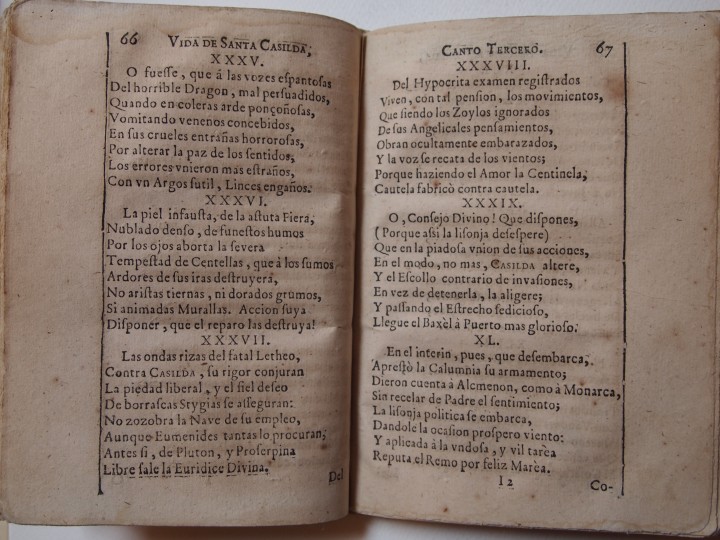 66 VIDA DE SANTA CASILDA,
XXXV.
O fuesse, que â las vozes espantosas
Del horrible Dragon, mal persuadidos,
Quando en coleras arde ponçoñosas,
Vomitando venenos concebidos,
En sus crueles entrañas horrorosas,
Por alterar la paz de los sentidos,
Los errores vnieron mas estraños,
Con vn Argos sutil, Linces engaños.
XXXVI.
La piel infausta, de la astuta Fiera,
Nublado denso, de funestos humos
Por los ojos aborta la severa
Tempestad de Centellas, que â los sumos
Ardores de sus iras destruyera,
No aristas tiernas, ni dorados grumos,
Si animadas Murallas. Accion suya
Disponer, que el reparo las destruya!
XXXVII.
Las ondas rizas del fatal Letheo,
Contra CASILDA, su rigor conjuran
La piedad liberal, y el fiel deseo
De borrascas Stygias se asseguran:
No zozobra la Nave de su empleo,
Aunque Eumenides tantas lo procuran;
Antes si, de Pluton, y Proserpina
Libre sale la Euridice Divina.
Del
CANTO TERCERO. 67
XXXVIII.
Del Hypocrita examen registrados
Viven, con tal pension, los movimientos,
Que siendo los Zoylos ignorados
De sus Angelicales pensamientos,
Obran ocultamente embarazados,
Y la voz se recata de los vientos;
Porque haziendo el Amor la Centinela,
Cautela fabricò contra cautela.
XXXIX.
O, Consejo Divino! Que dispones,
(Porque assi la lisonja desespere)
Que en la piadosa vnion de sus acciones,
En el modo, no mas, CASILDA altere,
Y el Escollo contrario de invasiones,
En vez de detenerla, la aligere;
Y passando el Estrecho sedicioso,
Llegue el Baxèl à Puerto mas glorioso.
XL.
En el interin, pues, que desembarca,
Aprestò la Calumnia su armamento;
Dieron cuenta à Alcmenon, como à Monarca,
Sin recelar de Padre el sentimiento;
La lisonja politica se embarca,
Dandole la ocasion prospero viento:
Y aplicada à la vndosa, y vil tarea
Reputa el Remo por feliz Marea.
I2 Co-